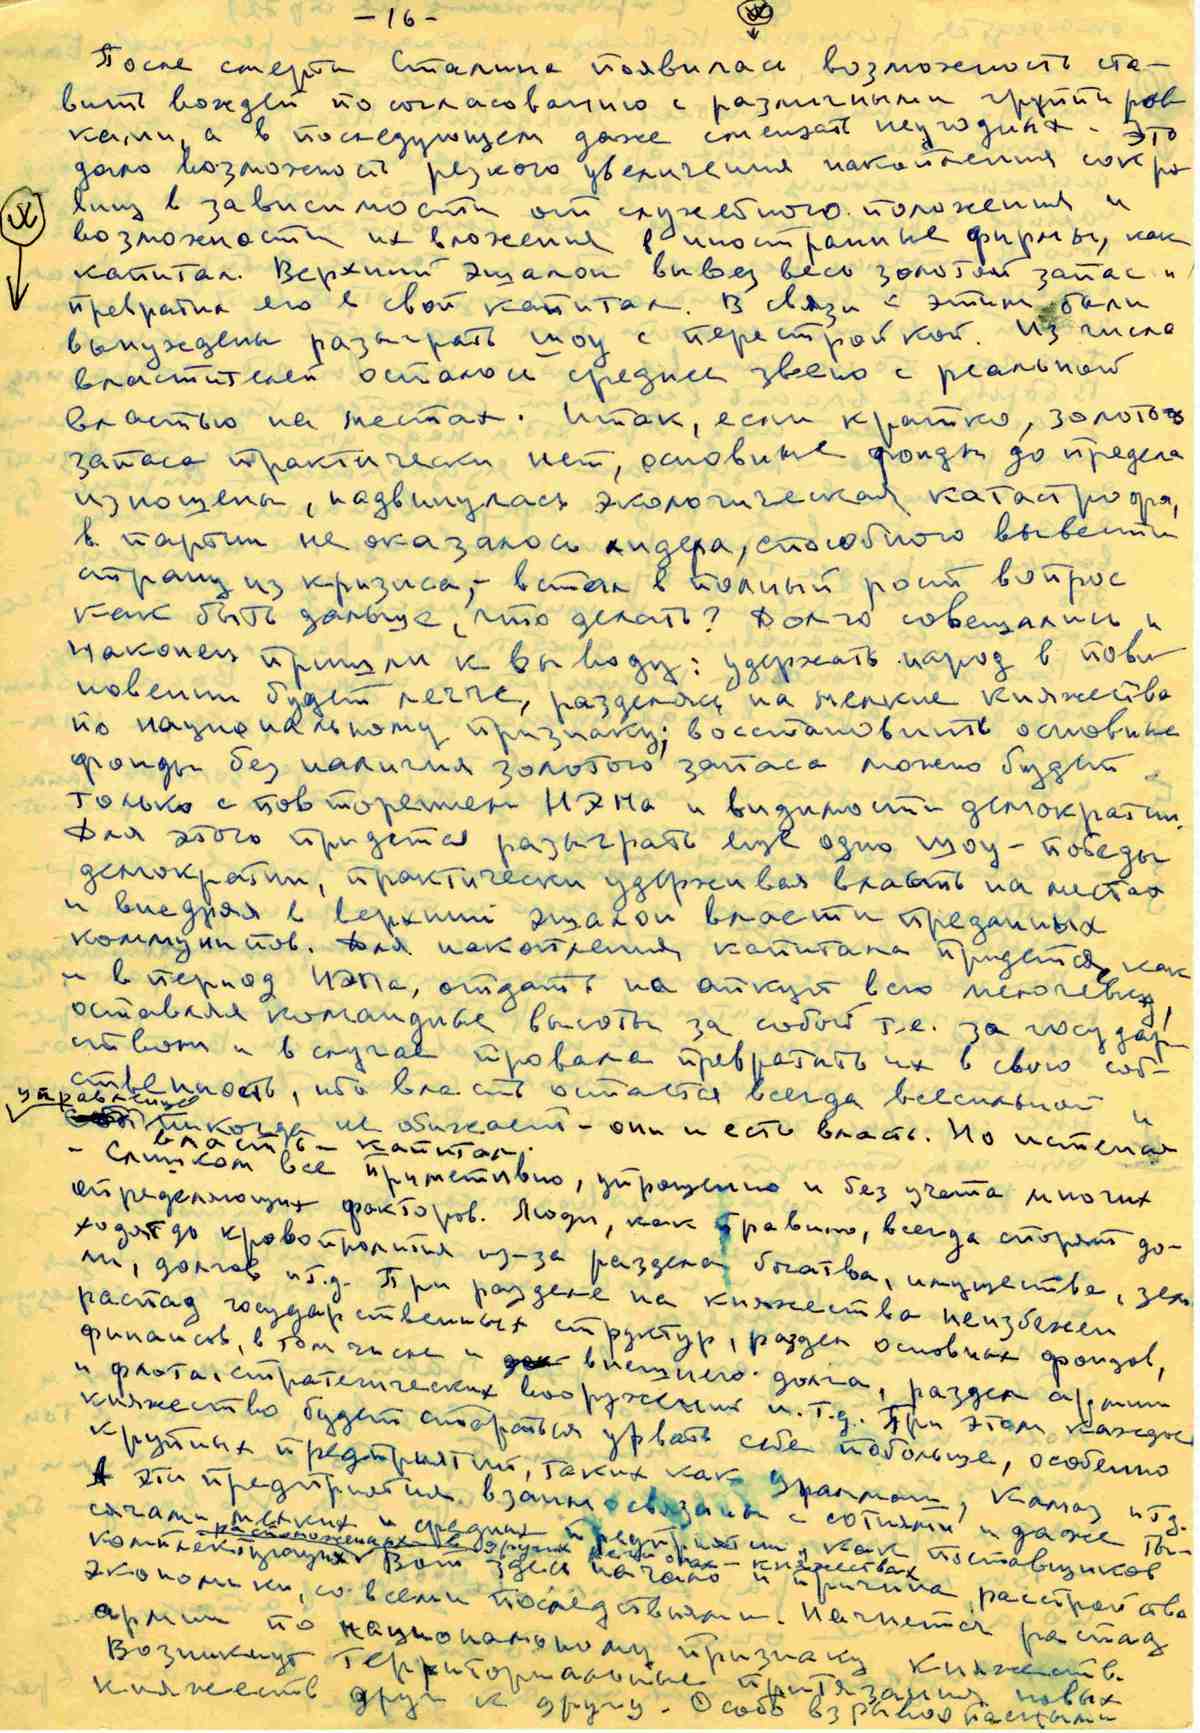 -16-
После смерти Сталина появилась возможность ста-
вить вождей по согласованию с различными группиров
ками, а в последующем даже смещать неугодных. Это
дало возможность резкого увеличения накопления сокро
вищ в зависимости от служебного положения и
возможности их вложения в иностранные фирмы, как
капитал. Верхний эшалон вывез весь золотой запас и
превратил его в свой капитал. В связи с этим были
вынуждены разыграть шоу с перестройкой. Из числа
властителей осталось среднее звено с реальной
властью на местах. Итак, если кратко, золотого
запаса практически нет, основные фонды до предела
изношены, надвинулась экологическая катастрофа,
в партии не оказалось лидера, способного вывести
страну из кризиса, - встал в полный рост вопрос
как быть дальше, что делать? Долго совещались и
наконец пришли к выводу: удержать народ в пови
новении будет легче, разделясь на мелкие княжества
по национальному признаку; восстановить основные
фонды без наличия золотого запаса можно будет
только с повторением НЭПа и видимости демократии.
Для этого придется разыграть еще одно шоу - победы
демократии, практически удерживая власть на местах
и внедряя в верхний эшалон власти преданных
коммунистов. Для накопления капитала придется, как
и в период НЭПа, отдать на откуп всю мелочевку,
оставляя командные высоты за собой т.е. за государ
ством и в случае провала превратить их в свою соб-
ственность, ибо власть остается всегда всесильной и
управляющие
никогда не обижает - они и есть власть. Но истен
власть - капитал.
- Слишком все приметивно, упрощенно и без учета многих
определяющих факторов. Люди, как правило, всегда спорят до-
ходят до кровопролития из-за раздела богатва, имущества, зем
ли, долгов и т.д. При разделе на княжества неизбежен
распад государственных структур, раздел основных фондов,
финансов, в том числе и внешнего долга, раздел армии
и флота, стратегических вооружений и.т.д. При этом каждое
княжество будет стараться урвать себе побольше, особенно
крупных предприятий, таких как Уралмаш, Камаз и т.д.
А эти предприятия взаимосвязаны с сотнями и даже ты-
сячами мелких и средних предприятий, как поставщиков
расположенных в других регионах - княжествах
комплектующих. Вот здесь начало и причина расстройства
экономики, со всеми последствиями. Начнется распад
армии по национальному признаку княжеств.
Возникнут территориальные притязания новых
княжеств друг к другу. Особо взрывоопасными